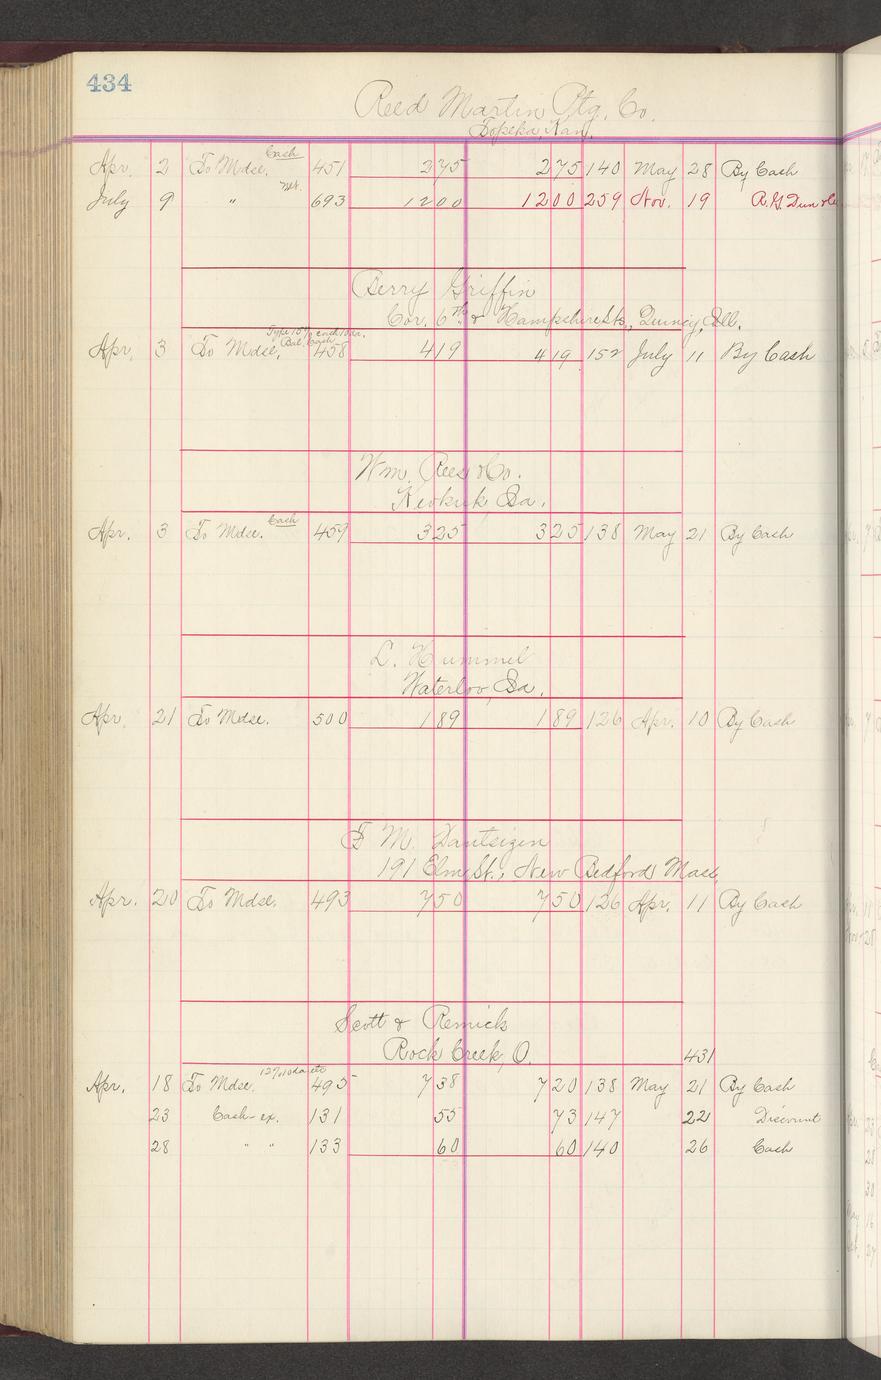 434
Reed Martin Ptg. Co.
Topeka, Kan.
Apr. 2 To Mdse. Cash 451 275 275 140 May 28 By Cash
July 9 " Net. 693 1200 1200 259 Nov. 19 R.G. Dun & Co
Berry Griffin
Cor. 6th & Hampshire Sts., Quincy, Ill.
Type 15% 10 da.
Bal. Cash
Apr. 3 To Mdse. 458 419 419 152 July 11 By Cash
Wm. Rees & Co.
Keokuk, Ia.
Apr. 3 To Mdse. Cash 459 325 325 138 May 21 By Cash
L. Hummel
Waterloo, Ia.
Apr. 21 To Mdse. 500 189 189 126 Apr. 10 By Cash
M.
191 Elm St., New Bedford Mass.
Apr. 20 To Mdse. 493 750 750 126 Apr. 11 By Cash
Scott & Remick
Rock Creek, O. 431
Apr. 18 To Mdse. 12% 10 da etc 495 738 720 138 May 21 By Cash
23 Cash-ex. 131 55 73 147 22 Discount
28 " " 133 60 60 140 26 Cash